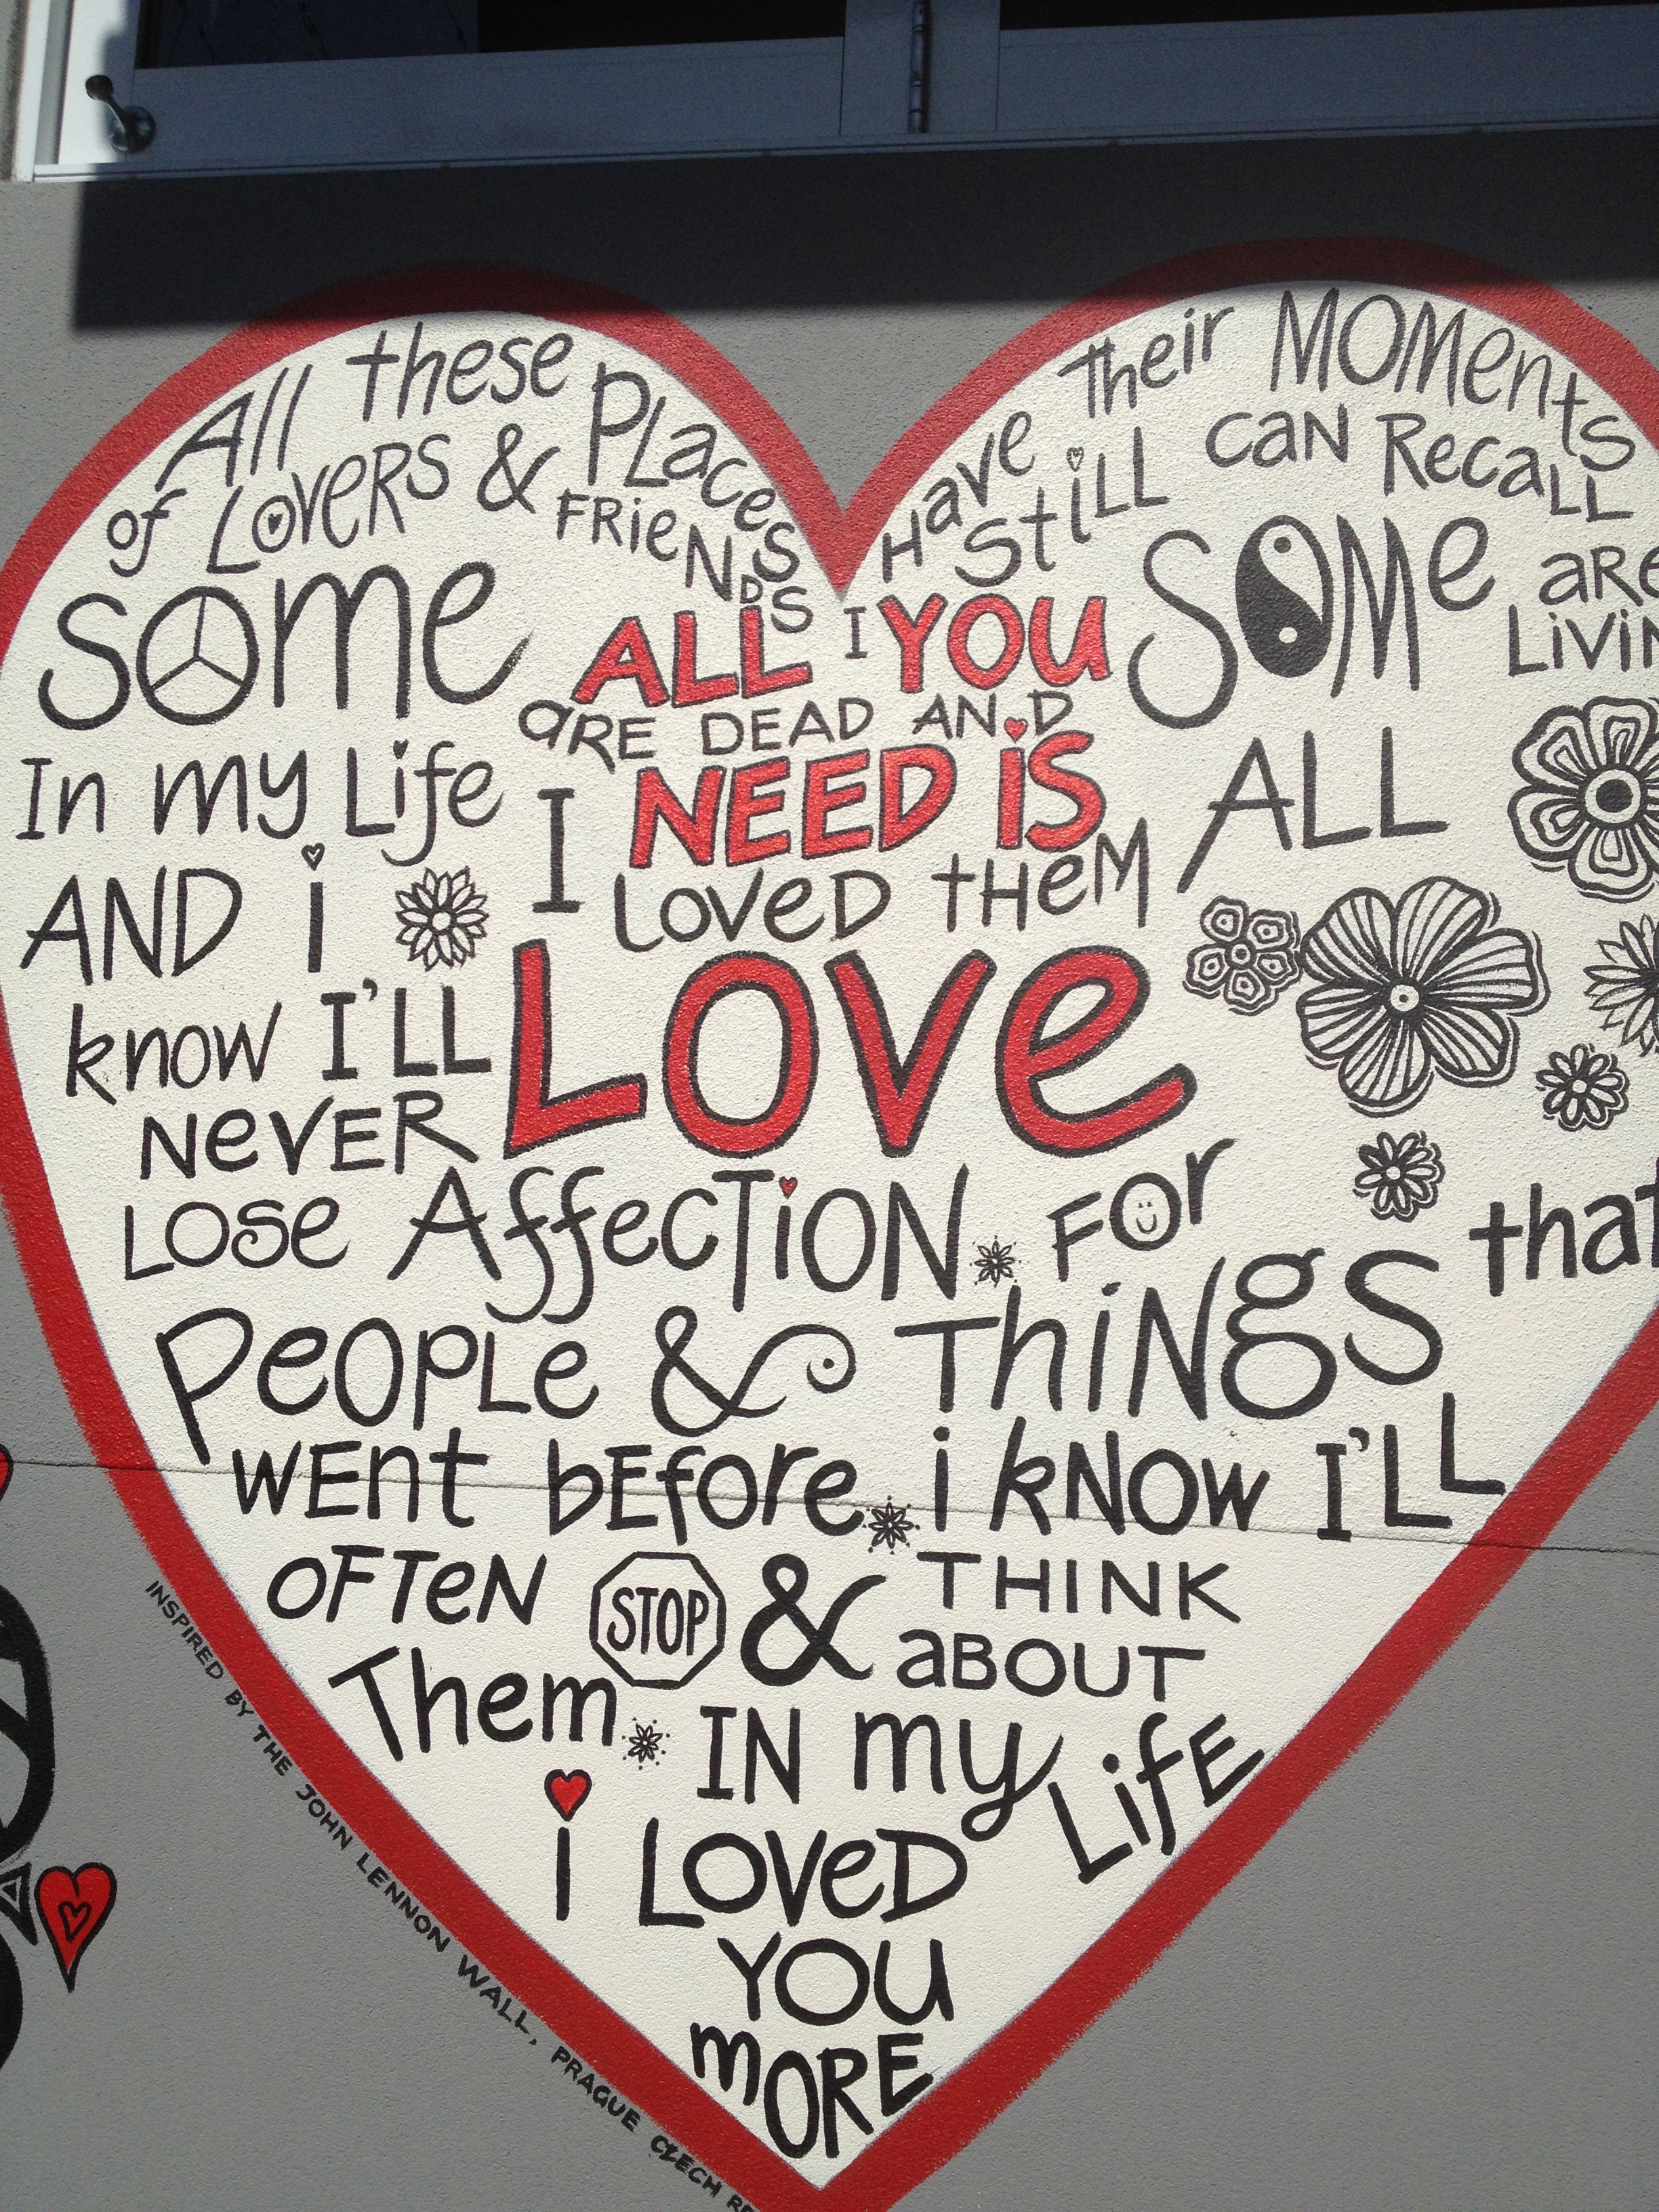 All these PLaces Have Their MOMents
of LOVERS & FRieNDS I Still CaN RecaLL
SOme are DEAD AND SOMe aRe
LiViN
In my Life I LOVeD tHeM ALL
ALL YOU
NEED iS
LOVe
AND i
know I'LL
NeVER
LOSe AffecTiON FOr
PeOPLe & ThiNgS that
WEnt bEfore i kNOW I'LL
OFTeN STOP & THINK
aBOUT
Them IN my LifE
i LOVeD
YOU
mORE
INSPIRED BY THE JOHN LENNON WALL, PRAGUE CZECH RE